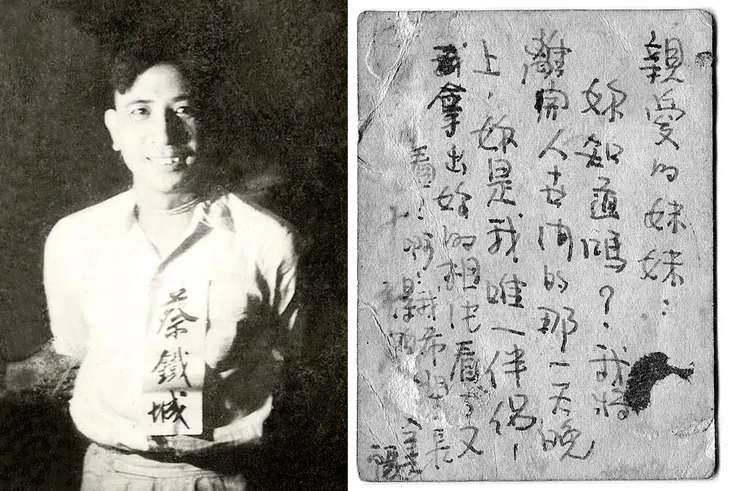 蔡鐵城
親愛的妹妹：
妳知道嗎？我將
離開人世間的那一天晚
上，妳是我唯一伴侶，
我拿出妳的相片看了又
看 我希望 長